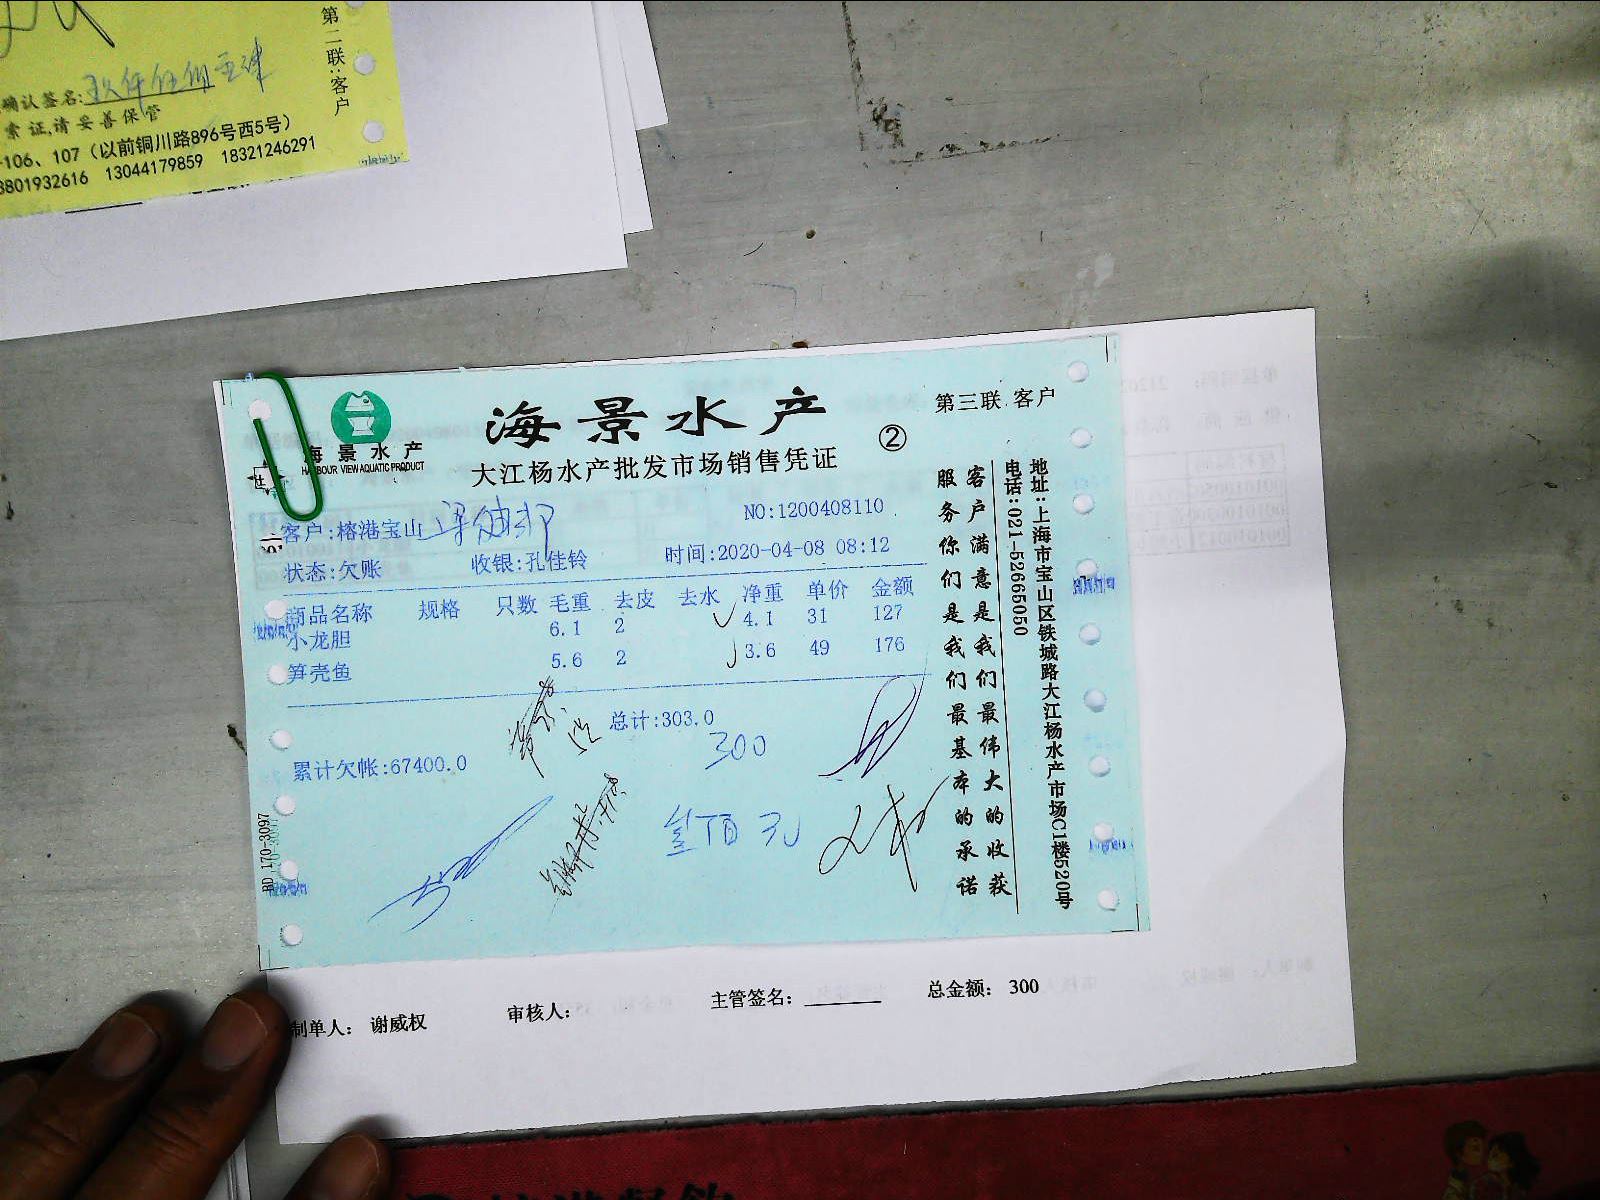 第二联:客户
确认签名:
索证,请妥善保管
-106、107（以前铜川路896号西5号）
3801932616 13044179859 18321246291
海景水产
HARBOUR VIEW AQUATIC PRODUCT
海景水产
大江杨水产批发市场销售凭证
②
第三联 客户
客户:榕港宝山
NO:1200408110
状态:欠账 收银:孔佳铃 时间:2020-04-08 08:12
商品名称 规格 只数 毛重 去皮 去水 净重 单价 金额
小龙胆 6.1 2 4.1 31 127
笋壳鱼 5.6 2 3.6 49 176
总计:303.0
300
累计欠帐:67400.0
叁佰元
客户满意是我们最伟大的收获
服务你们是我们最基本的承诺
地址:上海市宝山区铁城路大江杨水产市场C1楼520号
电话:021-52665050
BD 170-3097
制单人: 谢威权 审核人: 主管签名: 总金额: 300